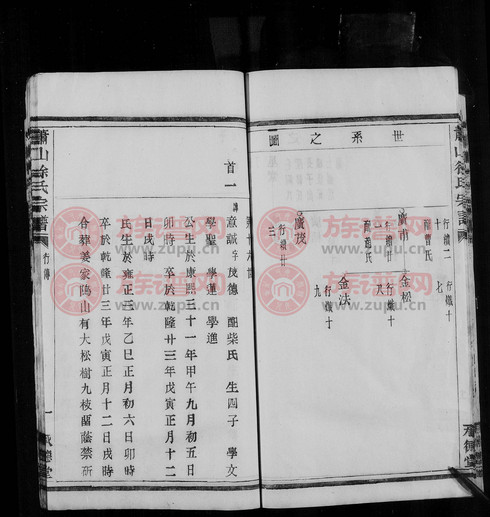 世系之圖
行續二
十
配曹氏
行熾十
七
廣甫
行續廿
一
配趙氏
金松
行熾十
八
金法
行熾十
九
廣琰
行續廿
三
蕭山徐氏宗譜
承德堂
首一
意誠 字茂德 配柴氏 生四子 學文
學聖 學蓮 學進
公生於康熙三十一年甲午九月初五日
卯時 卒於乾隆廿三年戊寅正月十二
日戌時
民生於雍正三年乙巳正月初六日卯時
卒於乾隆廿三年戊寅正月十二日戌時
合葬姜家隖山有大松樹九枝留蔭禁斫
蕭山徐氏宗譜
行傳
一
承德堂
族譜网
www.zupu.cn